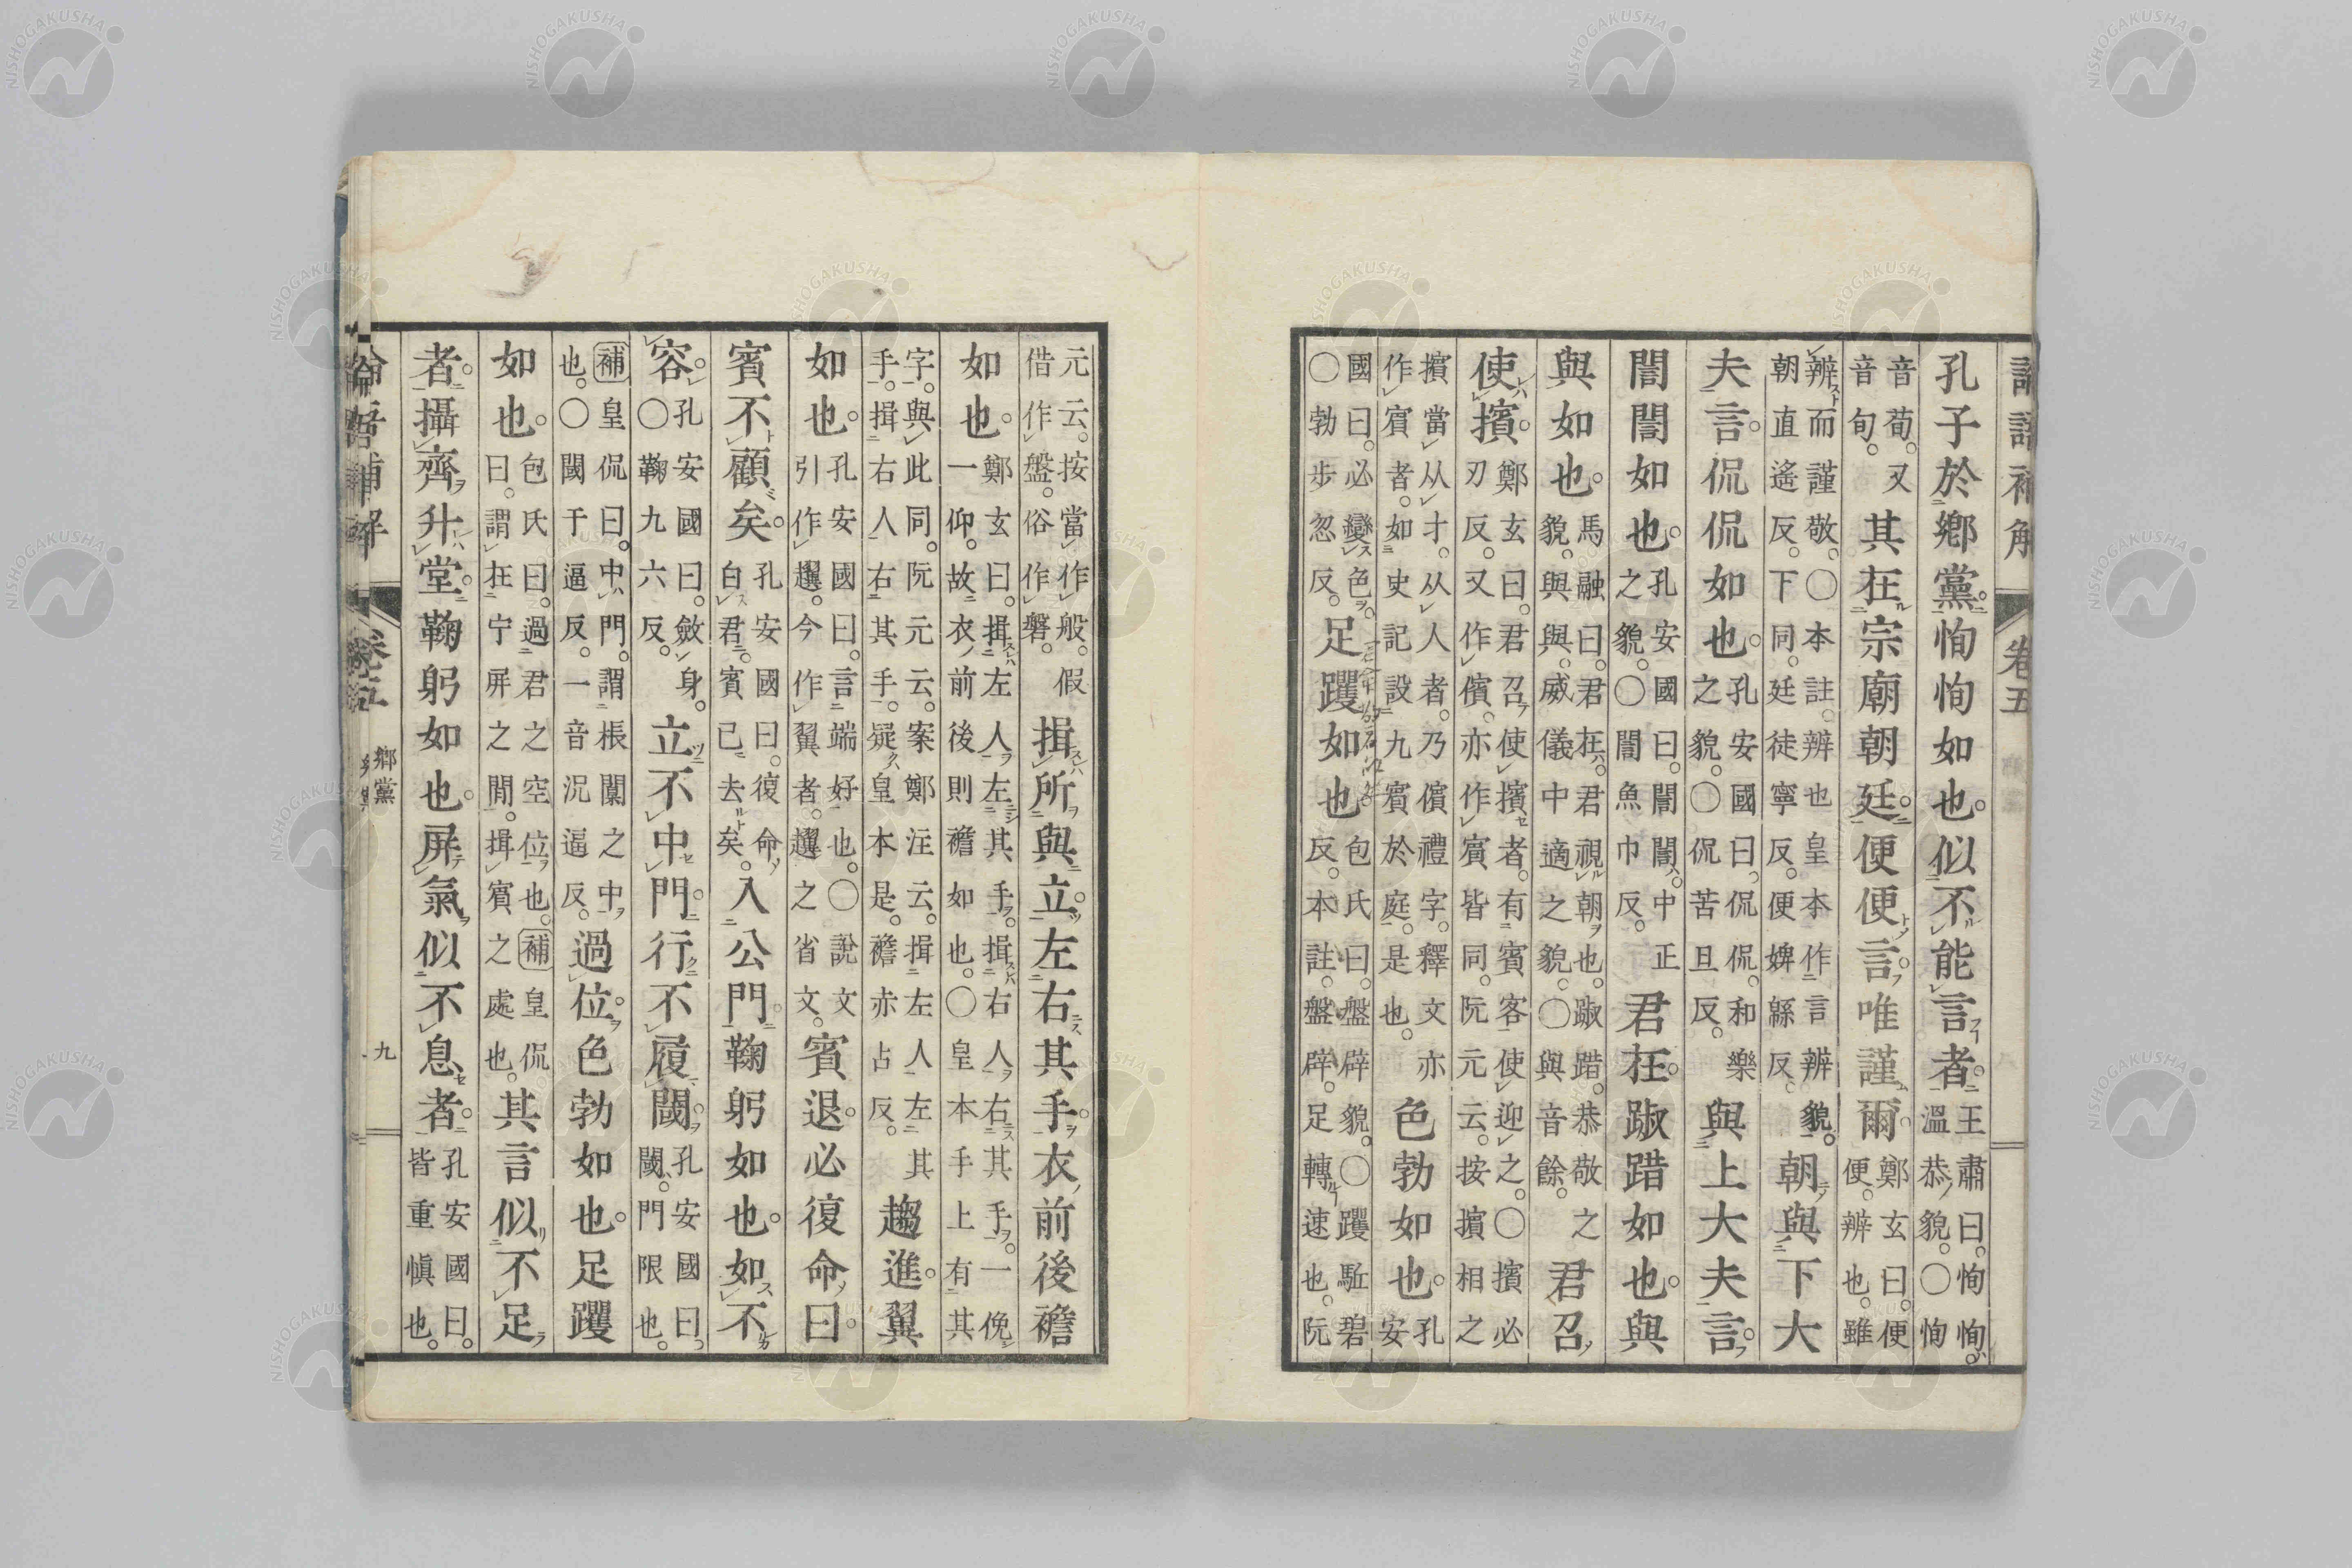 論語補解 卷五
孔子於鄉黨恂恂如也似不能言者王肅曰恂恂溫恭貌〇恂恂
音荀又音旬其在宗廟朝廷便便言唯謹爾鄭玄曰便便辨也雖
辨而謹敬〇本註辨也皇本作言辨貌朝直遙反下同廷徒寧反便婢緜反朝與下大
夫言侃侃如也孔安國曰侃侃和樂之貌〇侃苦旦反與上大夫言
誾誾如也孔安國曰誾誾中正之貌〇誾魚巾反君在踧踖如也與
與如也馬融曰君在君視朝也踧踖恭敬之貌與與威儀中適之貌〇與音餘君召
使擯鄭玄曰君召使擯者有賓客使迎之〇擯必刃反又作儐亦作賓皆同阮元云按擯相之
擯當从才从人者乃儐禮字釋文亦作賓者如史記設九賓於庭是也色勃如也孔安
國曰必變色〇勃步忽反足躩如也包氏曰盤辟貌〇躩駈碧反本註盤辟足轉速也阮
元云按當作般假借作盤俗作磐揖所與立左右其手衣前後襜
如也鄭玄曰揖左人左其手揖右人右其手一俛一仰故衣前後則襜如也〇皇本手上有其
字與此同阮元云案鄭注云揖左人左其手揖右人右其手疑皇本是襜赤占反趨進翼
如也孔安國曰言端好也〇說文引作趩今作翼者趩之省文賓退必復命曰
賓不顧矣孔安國曰復命白君賓已去矣入公門鞠躬如也如不
容孔安國曰斂身〇鞠九六反立不中門行不履閾孔安國曰閾門限也
補皇侃曰中門謂棖闑之中也〇閾于逼反一音況逼反過位色勃如也足躩
如也包氏曰過君之空位也補皇侃曰謂在宁屏之間揖賓之處也其言似不足
者攝齊升堂鞠躬如也屏氣似不息者孔安國曰皆重慎也
論語補解 卷五 鄉黨 九
NISHOGAKUSHA